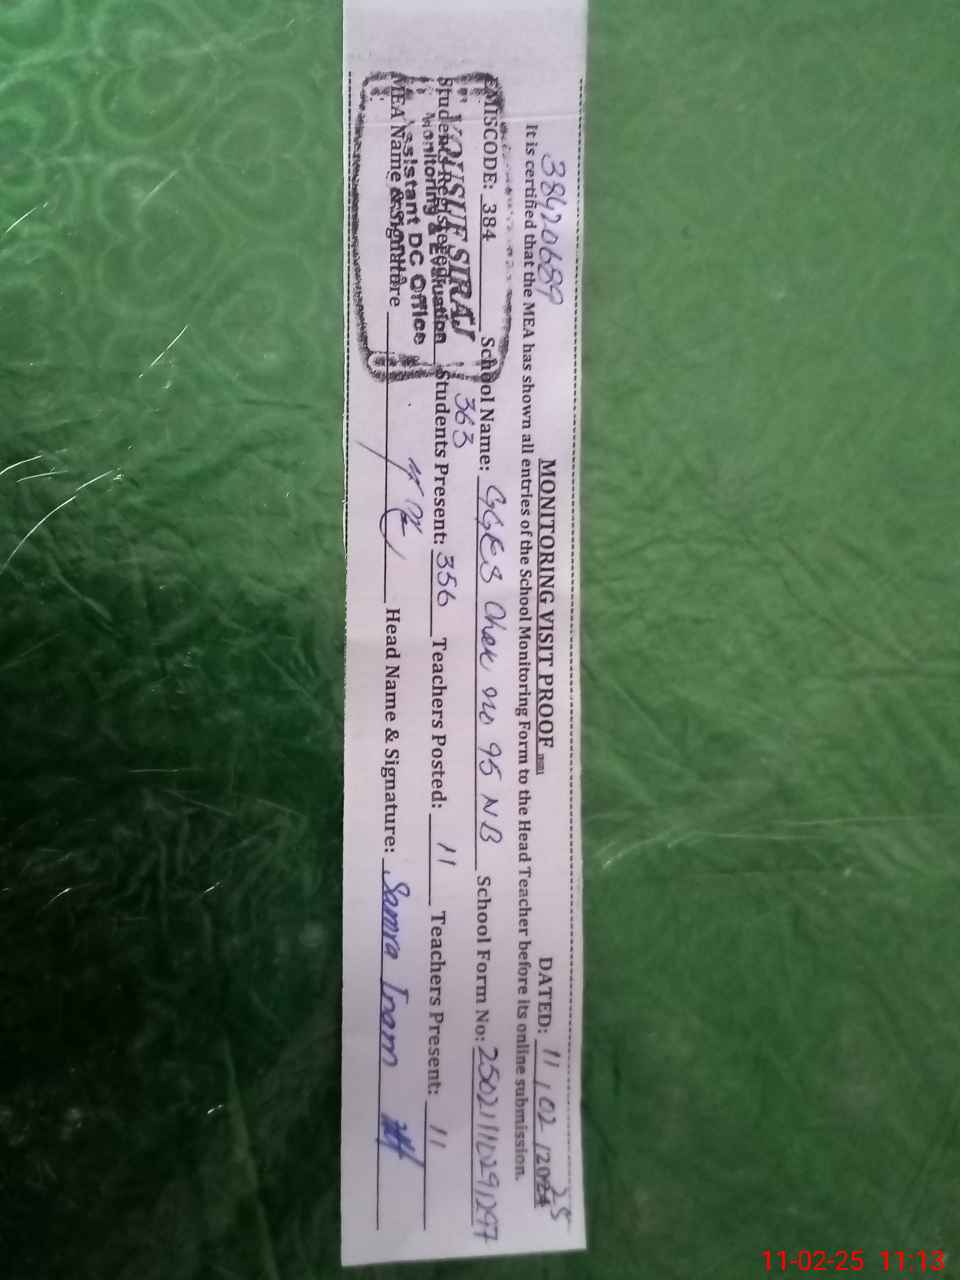 MONITORING VISIT PROOF DATED: 11/02/2025
38420689
It is certified that the MEA has shown all entries of the School Monitoring Form to the Head Teacher before its online submission.
EMISCODE: 384 School Name: GGES Chak no 95 NB School Form No:
Students Registered: 363 Students Present: 356 Teachers Posted: 11 Teachers Present: 11
MEA Name & Signature Head Name & Signature: Samra Inam
YOUSUF SIRAJ
Monitoring & Evaluation
Assistant DC Office
11-02-25 11:13